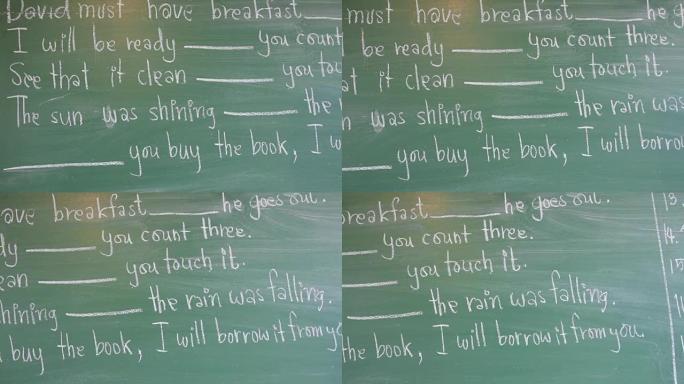 David must have breakfast ____
I will be ready ____ you count
See that it clean ____ you tou
The sun was shining ____ the
____ you buy the book, I w
must have breakfast ____ he g
be ready ____ you count three.
at it clean ____ you touch it.
n was shining ____ the rain was
____ you buy the book, I will borrow
ave breakfast ____ he goes out.
dy ____ you count three.
ean ____ you touch it.
hining ____ the rain was falling.
buy the book, I will borrow it from yo
breakfast ____ he goes out. 13.
____ you count three. 14.
____ you touch it. 15
____ the rain was falling.
the book, I will borrow it from you.